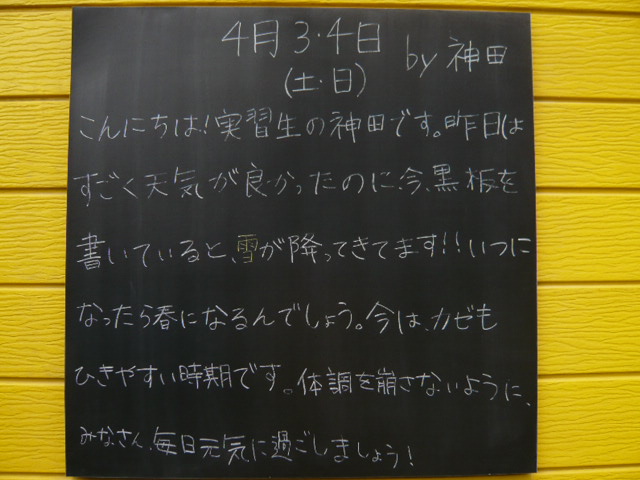 4月3·4日
by 神田
(土·日)
こんにちは!実習生の神田です。昨日は
すごく天気が良かったのに、今、黒板を
書いていると、雪が降ってきてます!!いつに
なったら春になるんでしょう。今は、カゼも
ひきやすい時期です。体調を崩さないように、
みなさん、毎日元気に過ごしましょう!